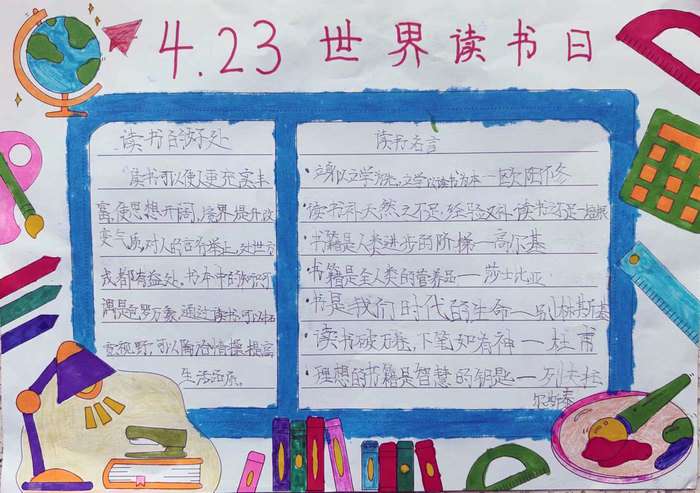 4.23 世界读书日
读书的好处
读书可以使人更充实丰
富,使思想开阔,境界提升改
变气质,对人的言行举止,处世方
式都有益处。书本中的知识可
谓是包罗万象,通过读书可以开
视野,可以陶冶情操,提高
生活品质。
读书名言
·立身以立学为先,立学以读书为本—欧阳修
·读书补天然之不足,经验又补读书之不足—培根
·书籍是人类进步的阶梯—高尔基
·书籍是全人类的营养品—莎士比亚
·书是我们时代的生命—别林斯基
·读书破万卷,下笔如有神—杜甫
·理想的书籍是智慧的钥匙—列夫·托
尔斯泰